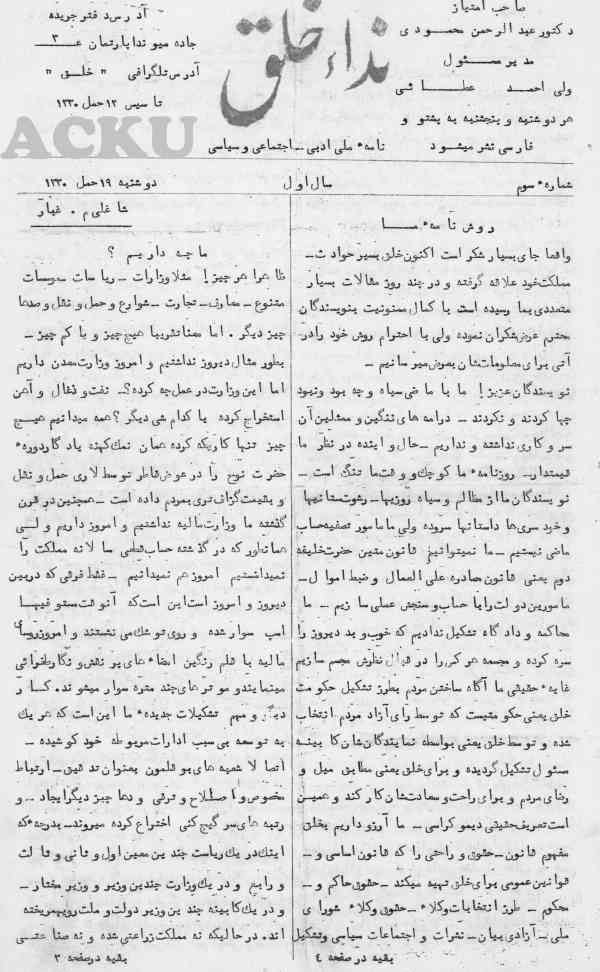 صاحب امتیاز
دکتور عبدالرحمن محمودی
مدیر مسئول
ولی احمد عطائی
هر دوشنبه و پنجشنبه به پشتو و
فارسی نشر میشود
نداء خلق
نامهٔ ملی ادبی ـ اجتماعی و سیاسی
آدرس دفتر جریده
جاده میوند اپارتمان ع ۳
آدرس تلگرافی « خلق »
تاسیس ۱۲ حمل ۱۳۳۰
ACKU
شمارهٔ سوم
سال اول
دوشنبه ۱۹ حمل ۱۳۳۰
روش نامهٔ ما
واقعا جای بسیار شکر است اکنون خلق بسیر حوادث ـ
مملکت خود علاقه گرفته و در چند روز مقالات بسیار
متعددی بما رسیده است با کمال ممنونیت بنویسندگان
محترم عرض شکران نموده ولی با احترام روش خود را در
آتی برای معلومات شان بعرض میرسانیم ـ
نویسندگان عزیز! ما با ماضی سیاه و چه بود و نبود
چها کردند و نکردند ـ درامه های ننگین و ممثلین آن
سر و کاری نداشته و نداریم ـ حال و اینده در نظر ما
قیمتدار ـ روزنامهٔ ما کوچک و وقت ما تنگ است ـ
نویسندگان ما از مظالم و سیاه روزیها ـ رشوت ستانیها
و خود سری ها داستانها سروده ولی ما مامور تصفیه حساب
ماضی نیستیم ـ ما نمیتوانیم قانون متین حضرت خلیفه
دوم یعنی قانون مصادره علی العمال و ضبط اموال ـ
مامورین دولت را با حساب و سنجش عملی سازیم ـ ما
محاکمه و دادگاه تشکیل ندادیم که خوب و بد دیروز را
سره کرده و مجسمه هر کس را در قبال نظرش مجسم سازیم
غایهٔ حقیقی ما آگاه ساختن مردم بطرز تشکیل حکومت
خلق یعنی حکومتیست که توسط رای آزاد مردم انتخاب
شده و توسط خلق یعنی بواسطه نمایندگان شان کابینه
مسئول تشکیل گردیده و برای خلق یعنی مطابق میل و
رضای مردم و برای راحت و سعادت شان کار کند و همین
است تعریف حقیقی دیموکراسی ـ ما آرزو داریم بخلق
مفهوم قانون ـ حقوق و راحتی را که قانون اساسی و ـ
قوانین عمومی برای خلق تهیه میکند ـ حقوق حاکم و ـ
محکوم ـ طرز انتخابات وکلاء ـ حقوق وکلاء شورای
ملی ـ آزادی بیان ـ نشرات و اجتماعات سیاسی و تشکیل
بقیه در صفحه ٤
ښاغلی م . غبار
ما چه داریم ؟
ظاهرا هر چیز! مثلا وزارات ـ ریاسات موسسات
متنوع ـ معارف ـ تجارت ـ شوارع و حمل و نقل و صدها
چیز دیگر . اما معنا تقریبا هیچ چیز و یا کم چیز ـ
بطور مثال دیروز نداشتیم و امروز وزارت معدن داریم
اما این وزارت در عمل چه کرده؟ ـ نفت و ذغال و آهن
استخراج کرده یا کدام شی دیگر ؟ همه میدانیم هیچ
چیز تنها کاریکه کرده همان نمک کهنه یادگار دورهٔ
حضرت نوح را در عوض قاطر توسط لاری حمل و نقل
و بقیمت گزاف تری بمردم داده است ـ همچنین در قرن
گذشته ما وزارت مالیه نداشتیم و امروز داریم ولی
همانطور که در گذشته حساب قطعی سالانه مملکت را
نمیدانستیم امروز هم نمیدانیم ـ فقط فرقی که در بین
دیروز و امروز است این است که آنوقت مستوفیها
اسپ سوار شده و روی توشک می نشستند و امروز روسای
مالیه با قلم رنگین امضاء های پر نقش و نگار طغرائی
مینمایند و موترهای چند متره سوار میشوند . کار
دیگر و مهم تشکیلات جدیدهٔ ما این است که هر یک
به توسعه بی سبب ادارات مربوطه خود کوشیده ـ
آنها لا شعبه های بوقلمون بعنوان تدقیق ـ ارتباط
مخصوص و اصطلاح و ترقی و دها چیز دیگر ایجاد ـ و
رتبه های سر گیج کنی اختراع کرده میروند ـ بدرجهٔ که
اینک در یک ریاست چندین معین اول و ثانی و ثالث
و رابع و در یک وزارت چندین وزیر و وزیر مختار ـ
و در یک کابینه چندین وزیر دولت و ملت رویهمریخته
اند . در حالیکه نه مملکت زراعتی شده و نه صناعتی
بقیه در صفحه ۳